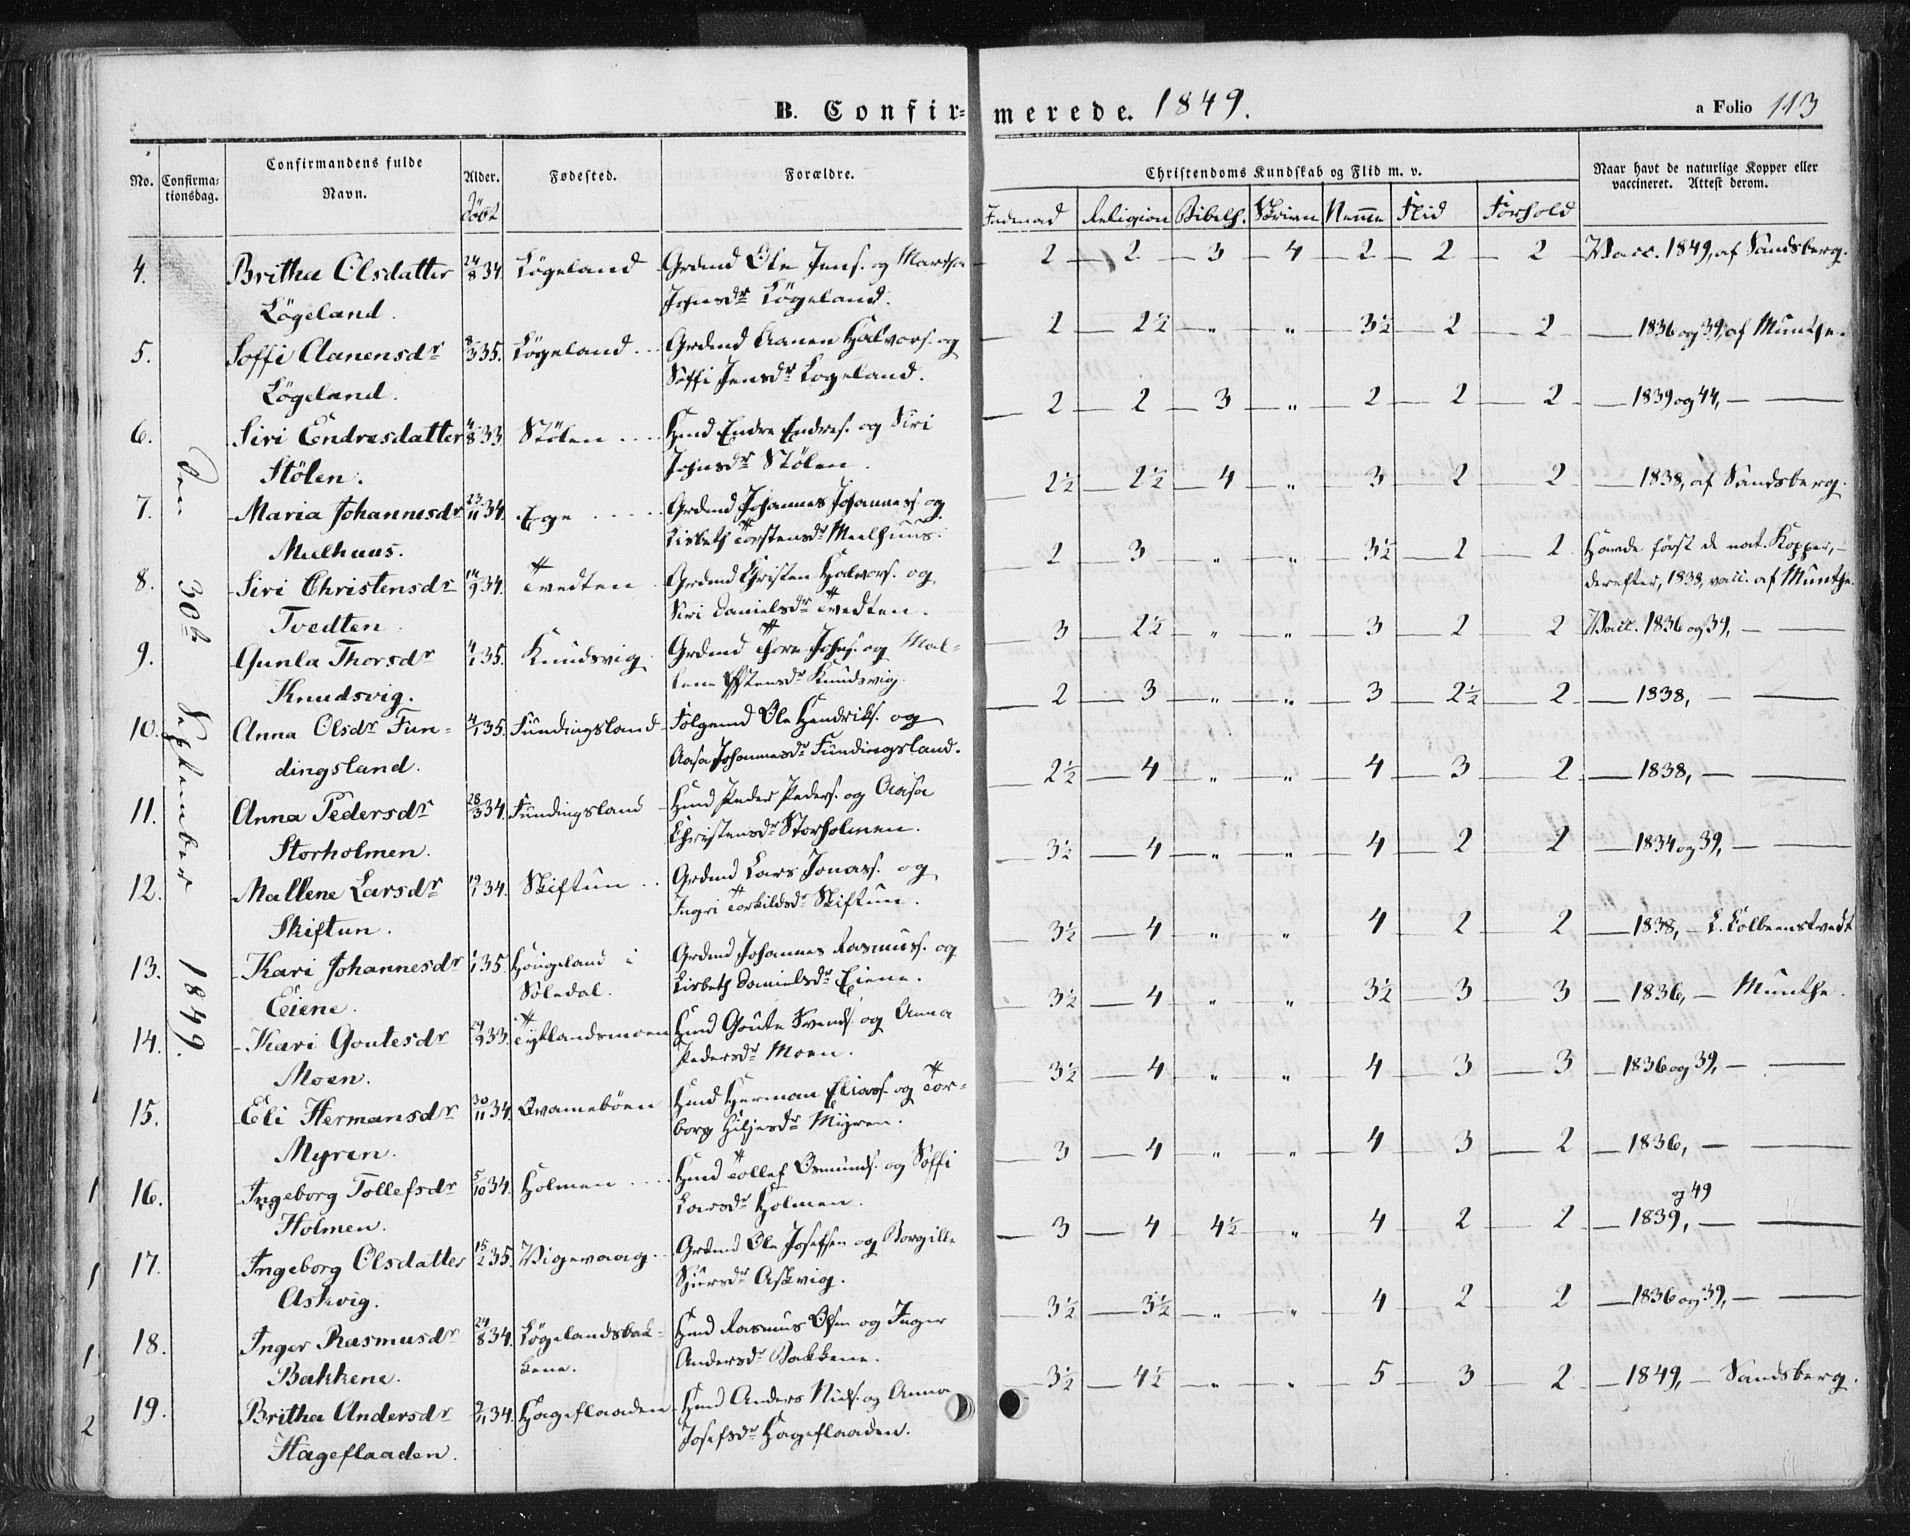 B. Confirmerede. 1849.
a Folio 113
No. Confirmationsdag. Confirmandens fulde Navn. Alder. Døbt Fødested. Forældre. Christendoms Kundskab og Flid m. v. Naar havt de naturlige Kopper eller vaccineret. Attest derom.
Religion Bibelh. Skriven Nemme Flid Forhold
Den 30te September 1849.
4. Britha Olsdatter 24/8 34. Løgeland Grdmd Ole Jens. og Martha 2 2 3 4 2 2 2 Vacc. 1849, af Sandsberg.
Løgeland. Johnsdr Løgeland.
5. Soffi Aanensdr 8/3 35. Løgeland Grdmd Aanen Halvors. og 2 2½ „ „ 3½ 2 2 1836 og 39, af Munthe.
Løgeland. Soffi Jensdr Løgeland.
6. Siri Endresdatter 4/8 33 Stølen Hmd Endre Endres. og Siri 2 2 3 „ 2 2 2 1839 og 44, —
Stölen. Johnsdr Stølen.
7. Maria Johannesdr 23/11 34. Ege Grdmd Johannes Johannes. og 2½ 2½ 4 „ 3 2 2 1838, af Sandsberg.
Melhuus. Lisbeth Torstensdr Meelhuus.
8. Siri Christensdr 14/9 34. Tvedten Grdmd Christen Halvors. og 2 3 „ „ 3½ 2 2 Havde først de nat. Kopper,
Tvedten. Siri Danielsdr Tvedten. derefter, 1838, vacc. af Munthe.
9. Gunla Thorsdr 4/1 35. Knudsvig Grdmd Thore Johns. og Mal- 3 2½ „ „ 3 2 2 Vacc. 1836 og 39, —
Knudsvig. lene Knudsvig.
10. Anna Olsdr Fun- 4/1 35. Fundingsland Folgemd Ole Hendriks. og 2 3 „ „ 3 2½ 2 1838, —
dingsland. Aasa Johannesdr Fundingsland.
11. Anna Pedersdr 28/3 34. Fundingsland Hmd Peder Peders. og Aasa 2½ 4 „ „ 4 3 2 1838, —
Storholmen. Christensdr Storholmen.
12. Mallene Larsdr 19/1 34. Skiftun Grdmd Lars Jonas. og 3½ 4 „ „ 4 2 2 1834 og 39, —
Skiftun. Ingri Torkildsdr Skiftun.
13. Kari Johannesdr 1/1 35 Hougeland i Grdmd Johannes Rasmus. og 3½ 4 „ „ 4 2 2 1838, — L. Kolbeenstvedt
Eiene. Søledal. Lisbeth Danielsdr Eiene.
14. Kari Goutesdr 29/9 33. Tytlandsmoen Hmd Goute Svends. og Anna 3½ 4 „ „ 3½ 3 3 1836, — Munthe.
Moen. Pedersdr Moen.
15. Eli Hermansdr 30/11 34. Qvamebøen Hmd Herman Elias. og Tor- 3½ 4 „ „ 4 3 3 1836 og 39, —
Myren. borg Hiljesdr Myren.
16. Ingeborg Tollefsdr 5/10 34. Holmen Hmd Tollef Osmunds. og Soffi 3 4 „ „ 4 3 2 1836, —
Holmen. Larsdr Holmen.
17. Ingeborg Olsdatter 15/2 35. Vigevaag Grdmd Ole Josefsen og Borgille 3 4 4½ „ 4 2 2 1839, og 49 —
Askvig. Sjursdr Askvig.
18. Inger Rasmusdr 24/8 34. Løgelandsbak- Hmd Rasmus Ols. og Inger 3½ 3½ „ „ 4 2 2 1836 og 39, —
Bakkene. kene. Andersdr Bakkene.
19. Britha Andersdr 2/11 34. Hageflaaden Hmd Anders Niels. og Anna 3½ 4½ „ „ 5 3 2 1849, — Sandsberg.
Hageflaaden. Josefsdr Hageflaaden.